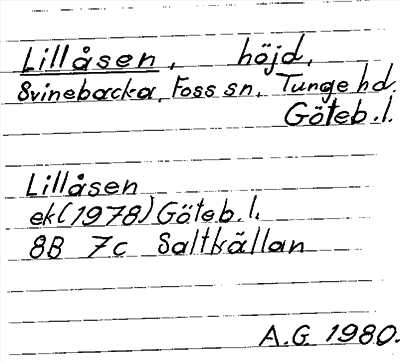 Lillåsen, höjd,
Svinebacka, Foss sn, Tunge hd.
Göteb. l.
Lillåsen
ek (1978) Göteb. l.
8B 7c Saltkällan
A.G 1980.